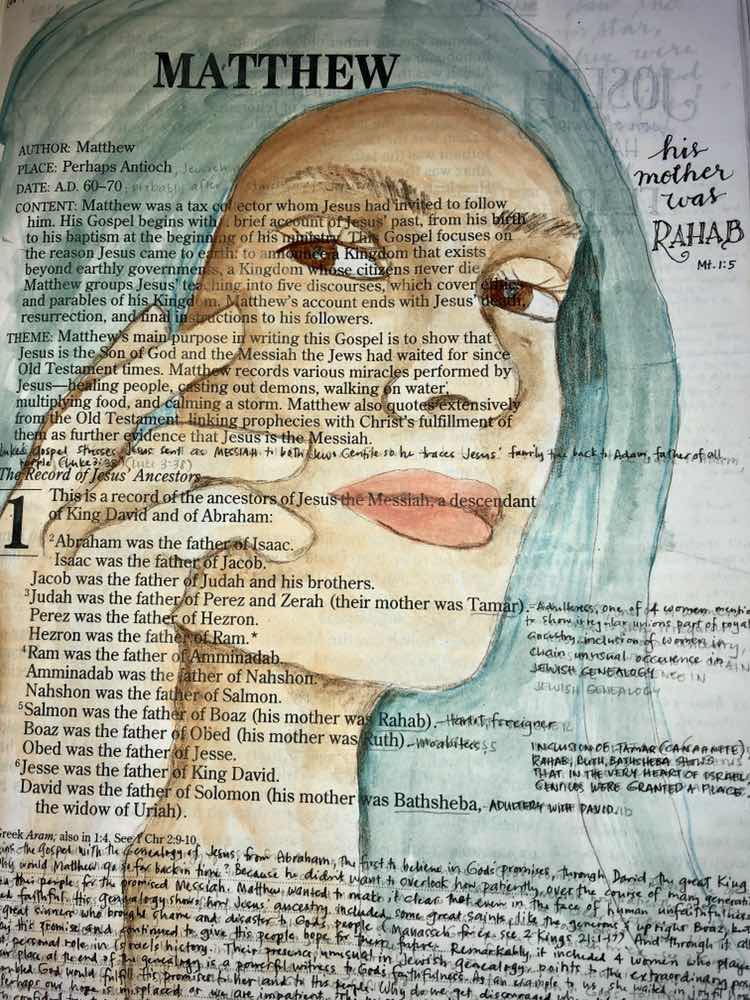 MATTHEW
his
mother
was
RAHAB
Mt. 1:5
AUTHOR: Matthew
PLACE: Perhaps Antioch
DATE: A.D. 60–70
CONTENT: Matthew was a tax collector whom Jesus had invited to follow
him. His Gospel begins with a brief account of Jesus' past, from his birth
to his baptism at the beginning of his ministry. This Gospel focuses on
the reason Jesus came to earth: to announce a Kingdom that exists
beyond earthly governments, a Kingdom whose citizens never die.
Matthew groups Jesus' teaching into five discourses, which cover ethics
and parables of his Kingdom. Matthew's account ends with Jesus' death,
resurrection, and final instructions to his followers.
THEME: Matthew's main purpose in writing this Gospel is to show that
Jesus is the Son of God and the Messiah the Jews had waited for since
Old Testament times. Matthew records various miracles performed by
Jesus—healing people, casting out demons, walking on water,
multiplying food, and calming a storm. Matthew also quotes extensively
from the Old Testament, linking prophecies with Christ's fulfillment of
them as further evidence that Jesus is the Messiah.
Luke's gospel stresses Jesus sent as MESSIAH to both Jews Gentile so he traces Jesus' family tree back to Adam, father of all
people (Luke 3:38)
The Record of Jesus' Ancestors
1 This is a record of the ancestors of Jesus the Messiah, a descendant
of King David and of Abraham:
2 Abraham was the father of Isaac.
Isaac was the father of Jacob.
Jacob was the father of Judah and his brothers.
3 Judah was the father of Perez and Zerah (their mother was Tamar).
Perez was the father of Hezron.
Hezron was the father of Ram.*
4 Ram was the father of Amminadab.
Amminadab was the father of Nahshon.
Nahshon was the father of Salmon.
5 Salmon was the father of Boaz (his mother was Rahab). - Harlot, foreigner
Boaz was the father of Obed (his mother was Ruth). - Moabitess
Obed was the father of Jesse.
6 Jesse was the father of King David.
David was the father of Solomon (his mother was Bathsheba, - ADULTERY WITH DAVID
the widow of Uriah).
one of 4 women
to show irregular unions part of royal
ancestry, inclusion of women in
chain unusual occurence in
JEWISH GENEALOGY
INCLUSION OF TAMAR (CANAANITE)
RAHAB, RUTH, BATHSHEBA SHOWS
THAT IN THE VERY HEART OF ISRAEL
GENTILES WERE GRANTED A PLACE.
Greek Aram; also in 1:4. See 1 Chr 2:9-10.
the Gospel with the Genealogy of Jesus, from Abraham, the first to believe in God's promises, through David, the great King
why would Matthew go so far back in time? Because he didn't want to overlook how patiently, over the course of many
this people for the promised Messiah. Matthew wanted to make it clear that even in the face of human
faithful. His genealogy shows how Jesus' ancestry included some great saints, like the generous & upright Boaz, but
great sinners who brought shame and disaster to God's people (Manasseh for ex. see 2 Kings 21:1-17) And through it all
his promise and continued to give this people hope for their future. Remarkably, it included 4 women who
personal role in Israel's history. Their presence, unusual in Jewish genealogy, points to the extraordinary
place at the end of the genealogy is a powerful witness to God's faithfulness. As an example to us, she waited in joyful
God would fulfill His promises to her and to His people. Why do we get discouraged
Perhaps our hope is misplaced or we are impatient.